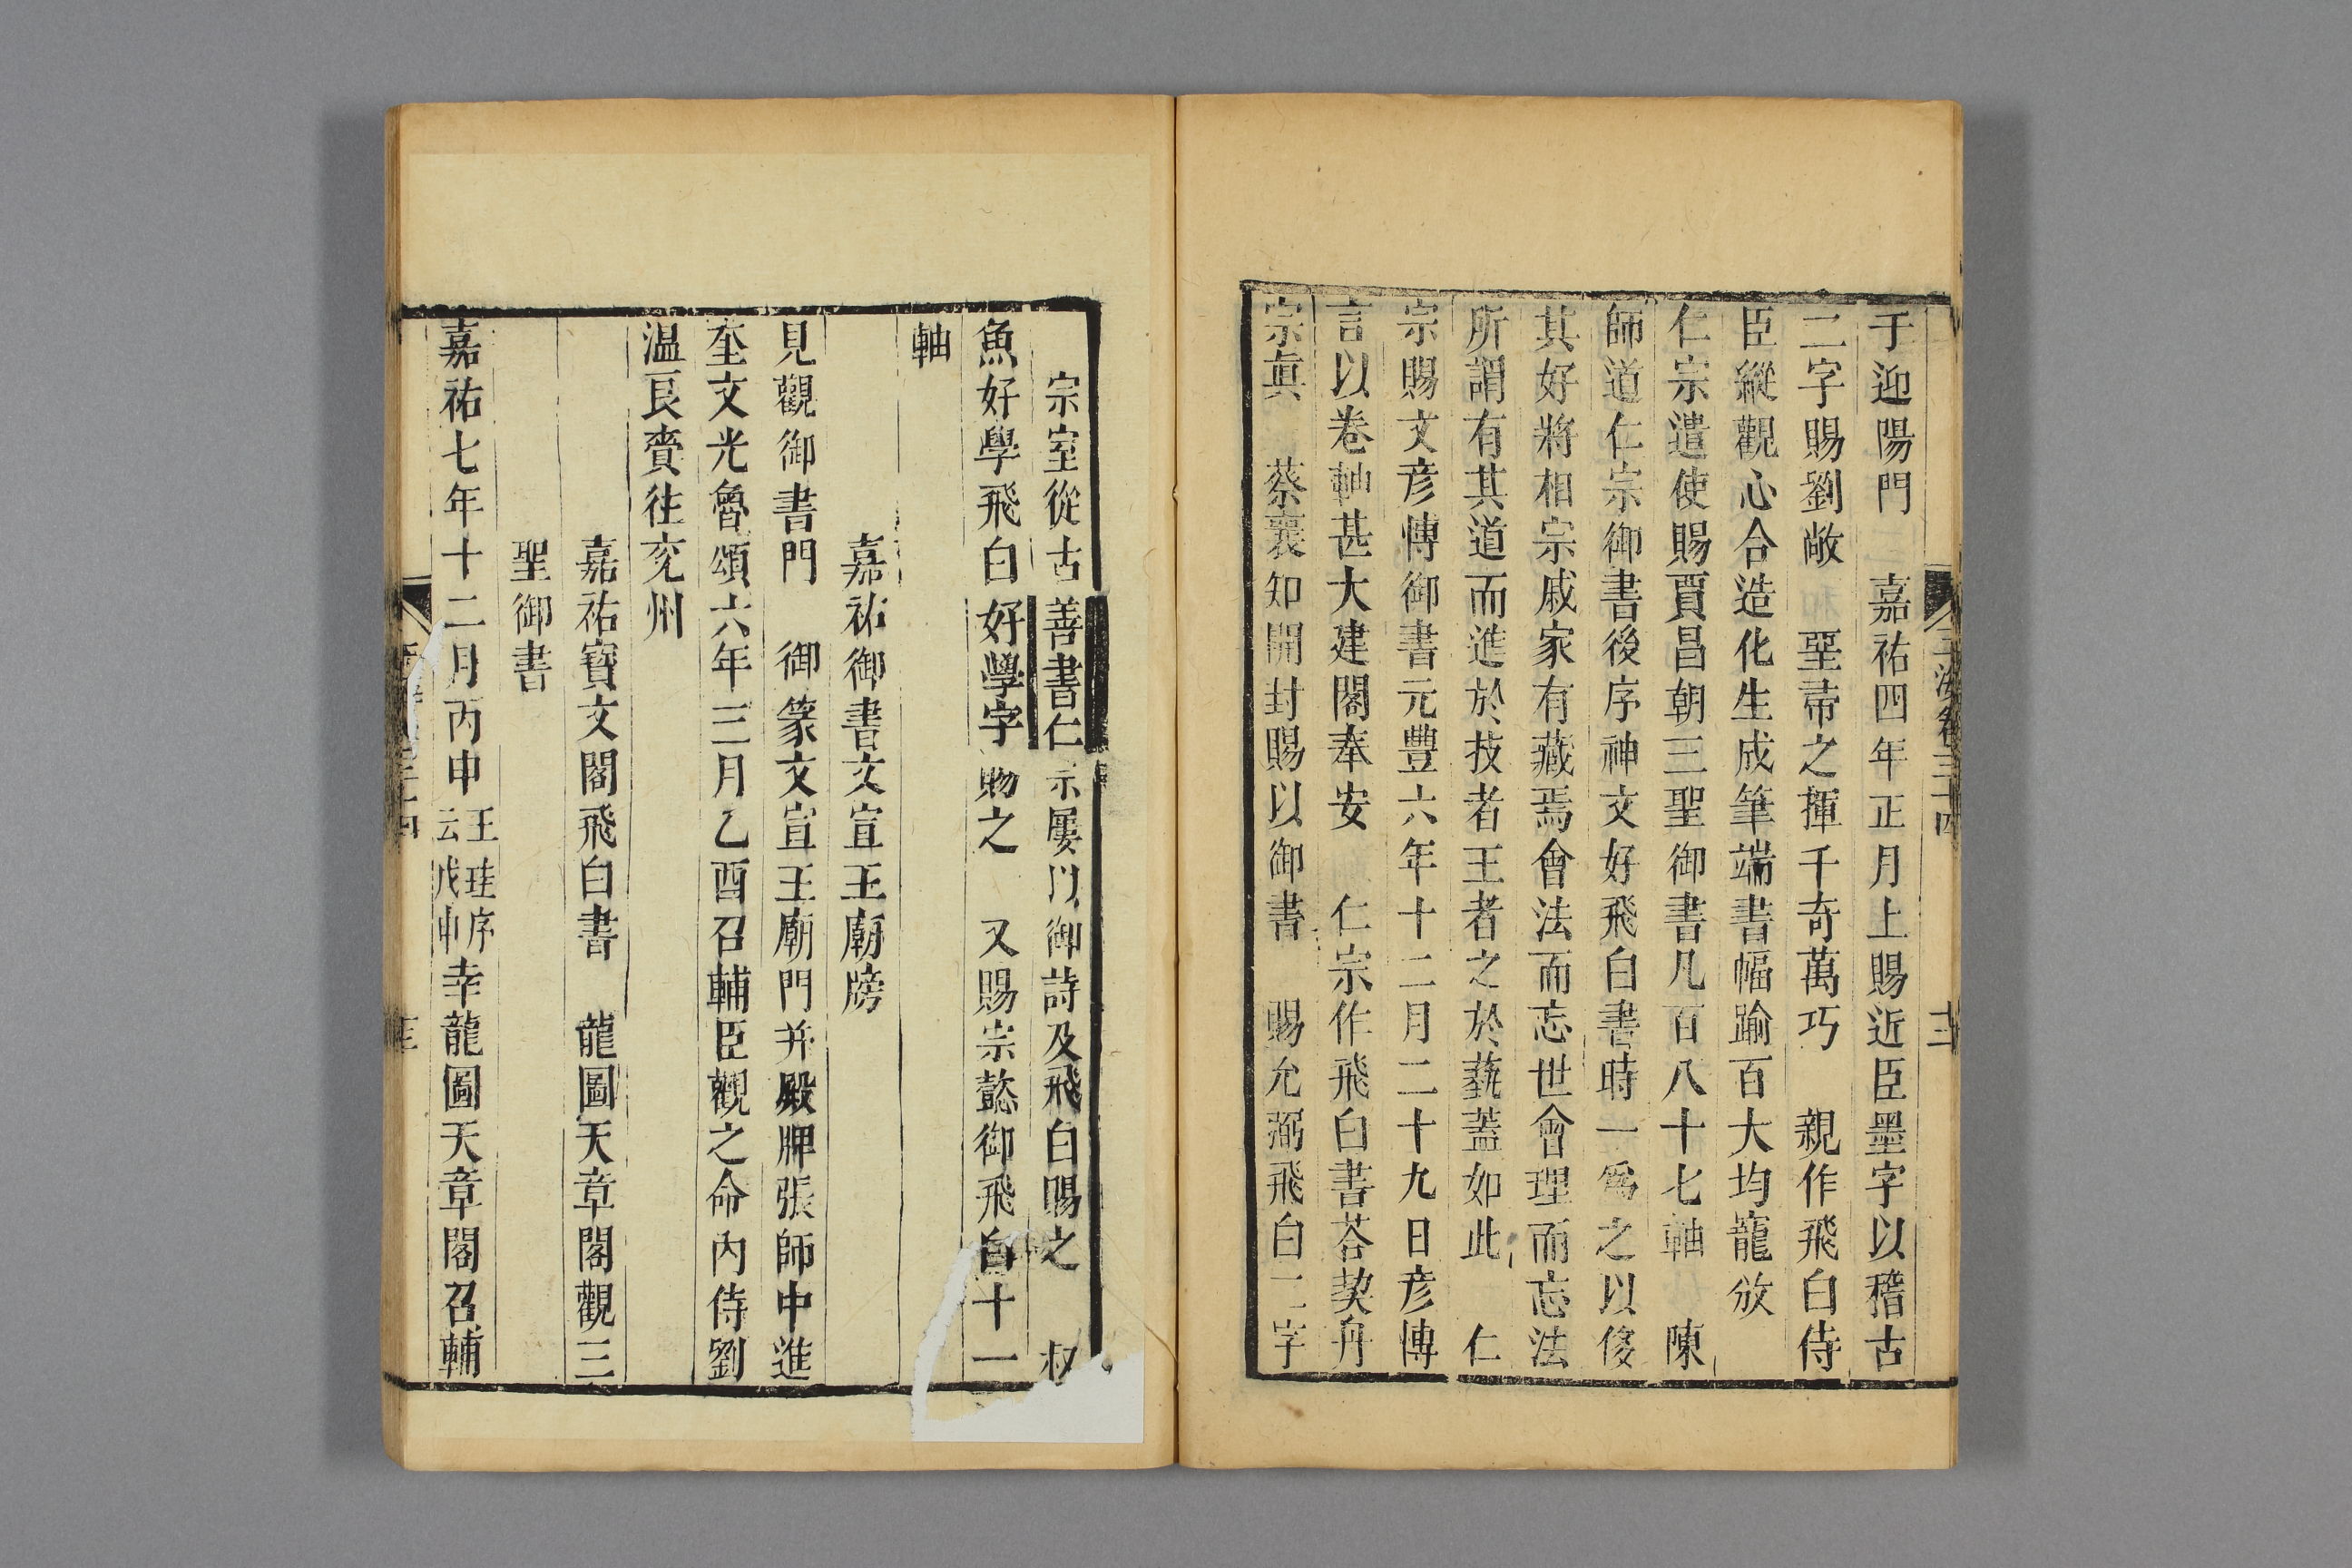 于迎陽門　嘉祐四年正月上賜近臣墨字以稽古
二字賜劉敞　聖帝之揮千奇萬巧　親作飛白侍
臣縱觀心合造化生成筆端書幅踰百大均寵攽
仁宗遣使賜賈昌朝三聖御書凡百八十七軸　陳
師道仁宗御書後序神文好飛白書時一爲之以侈
其好將相宗戚家有藏焉會法而忘世會理而忘法
所謂有其道而進於技者王者之於蓺蓋如此　仁
宗賜文彦愽御書元豐六年十二月二十九日彦愽
言以卷軸甚大建閣奉安　仁宗作飛白書荅契丹
宗真　蔡襄知開封賜以御書　賜允弼飛白二字
宗室從古善書仁宗屢以御詩及飛白賜之　叔
魚好學飛白好學字賜之　又賜宗懿御飛白十一
軸
嘉祐御書文宣王廟牓
見觀御書門　御篆文宣王廟門并殿牌張師中進
奎文光魯頌六年三月乙酉召輔臣觀之命內侍劉
温良賫往兖州
嘉祐寶文閣飛白書　龍圖天章閣觀三
聖御書
嘉祐七年十二月丙申王珪序云戊申幸龍圖天章閣召輔